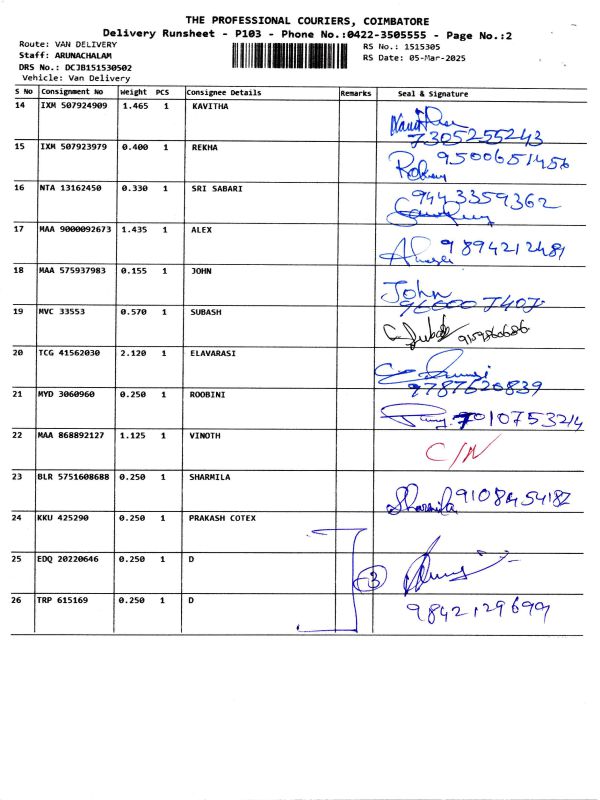 THE PROFESSIONAL COURIERS, COIMBATORE
Delivery Runsheet - P103 - Phone No.:0422-3505555 - Page No.:2
Route: VAN DELIVERY
Staff: ARUNACHALAM
DRS No.: DCJB151530502
Vehicle: Van Delivery
RS No.: 1515305
RS Date: 05-Mar-2025
S No Consignment No Weight PCS Consignee Details Remarks Seal & Signature
14 IXM 507924909 1.465 1 KAVITHA
7305255243
15 IXM 507923979 0.400 1 REKHA 9500651456
16 NTA 13162450 0.330 1 SRI SABARI 9443359362
17 MAA 9000092673 1.435 1 ALEX 9894212481
18 MAA 575937983 0.155 1 JOHN John
960007407
19 MVC 33553 0.570 1 SUBASH 9159860686
20 TCG 41562030 2.120 1 ELAVARASI
9787620839
21 MYD 3060960 0.250 1 ROOBINI 7010753214
22 MAA 868892127 1.125 1 VINOTH C/N
23 BLR 5751608688 0.250 1 SHARMILA Sharmila 9108454182
24 KKU 425290 0.250 1 PRAKASH COTEX
25 EDQ 20220646 0.250 1 D 3
26 TRP 615169 0.250 1 D 9842129699